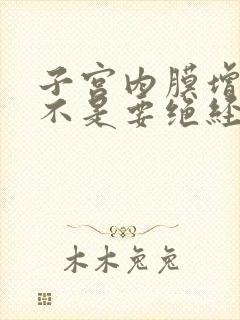 子宫内膜增
不是要绝经
木木兔兔